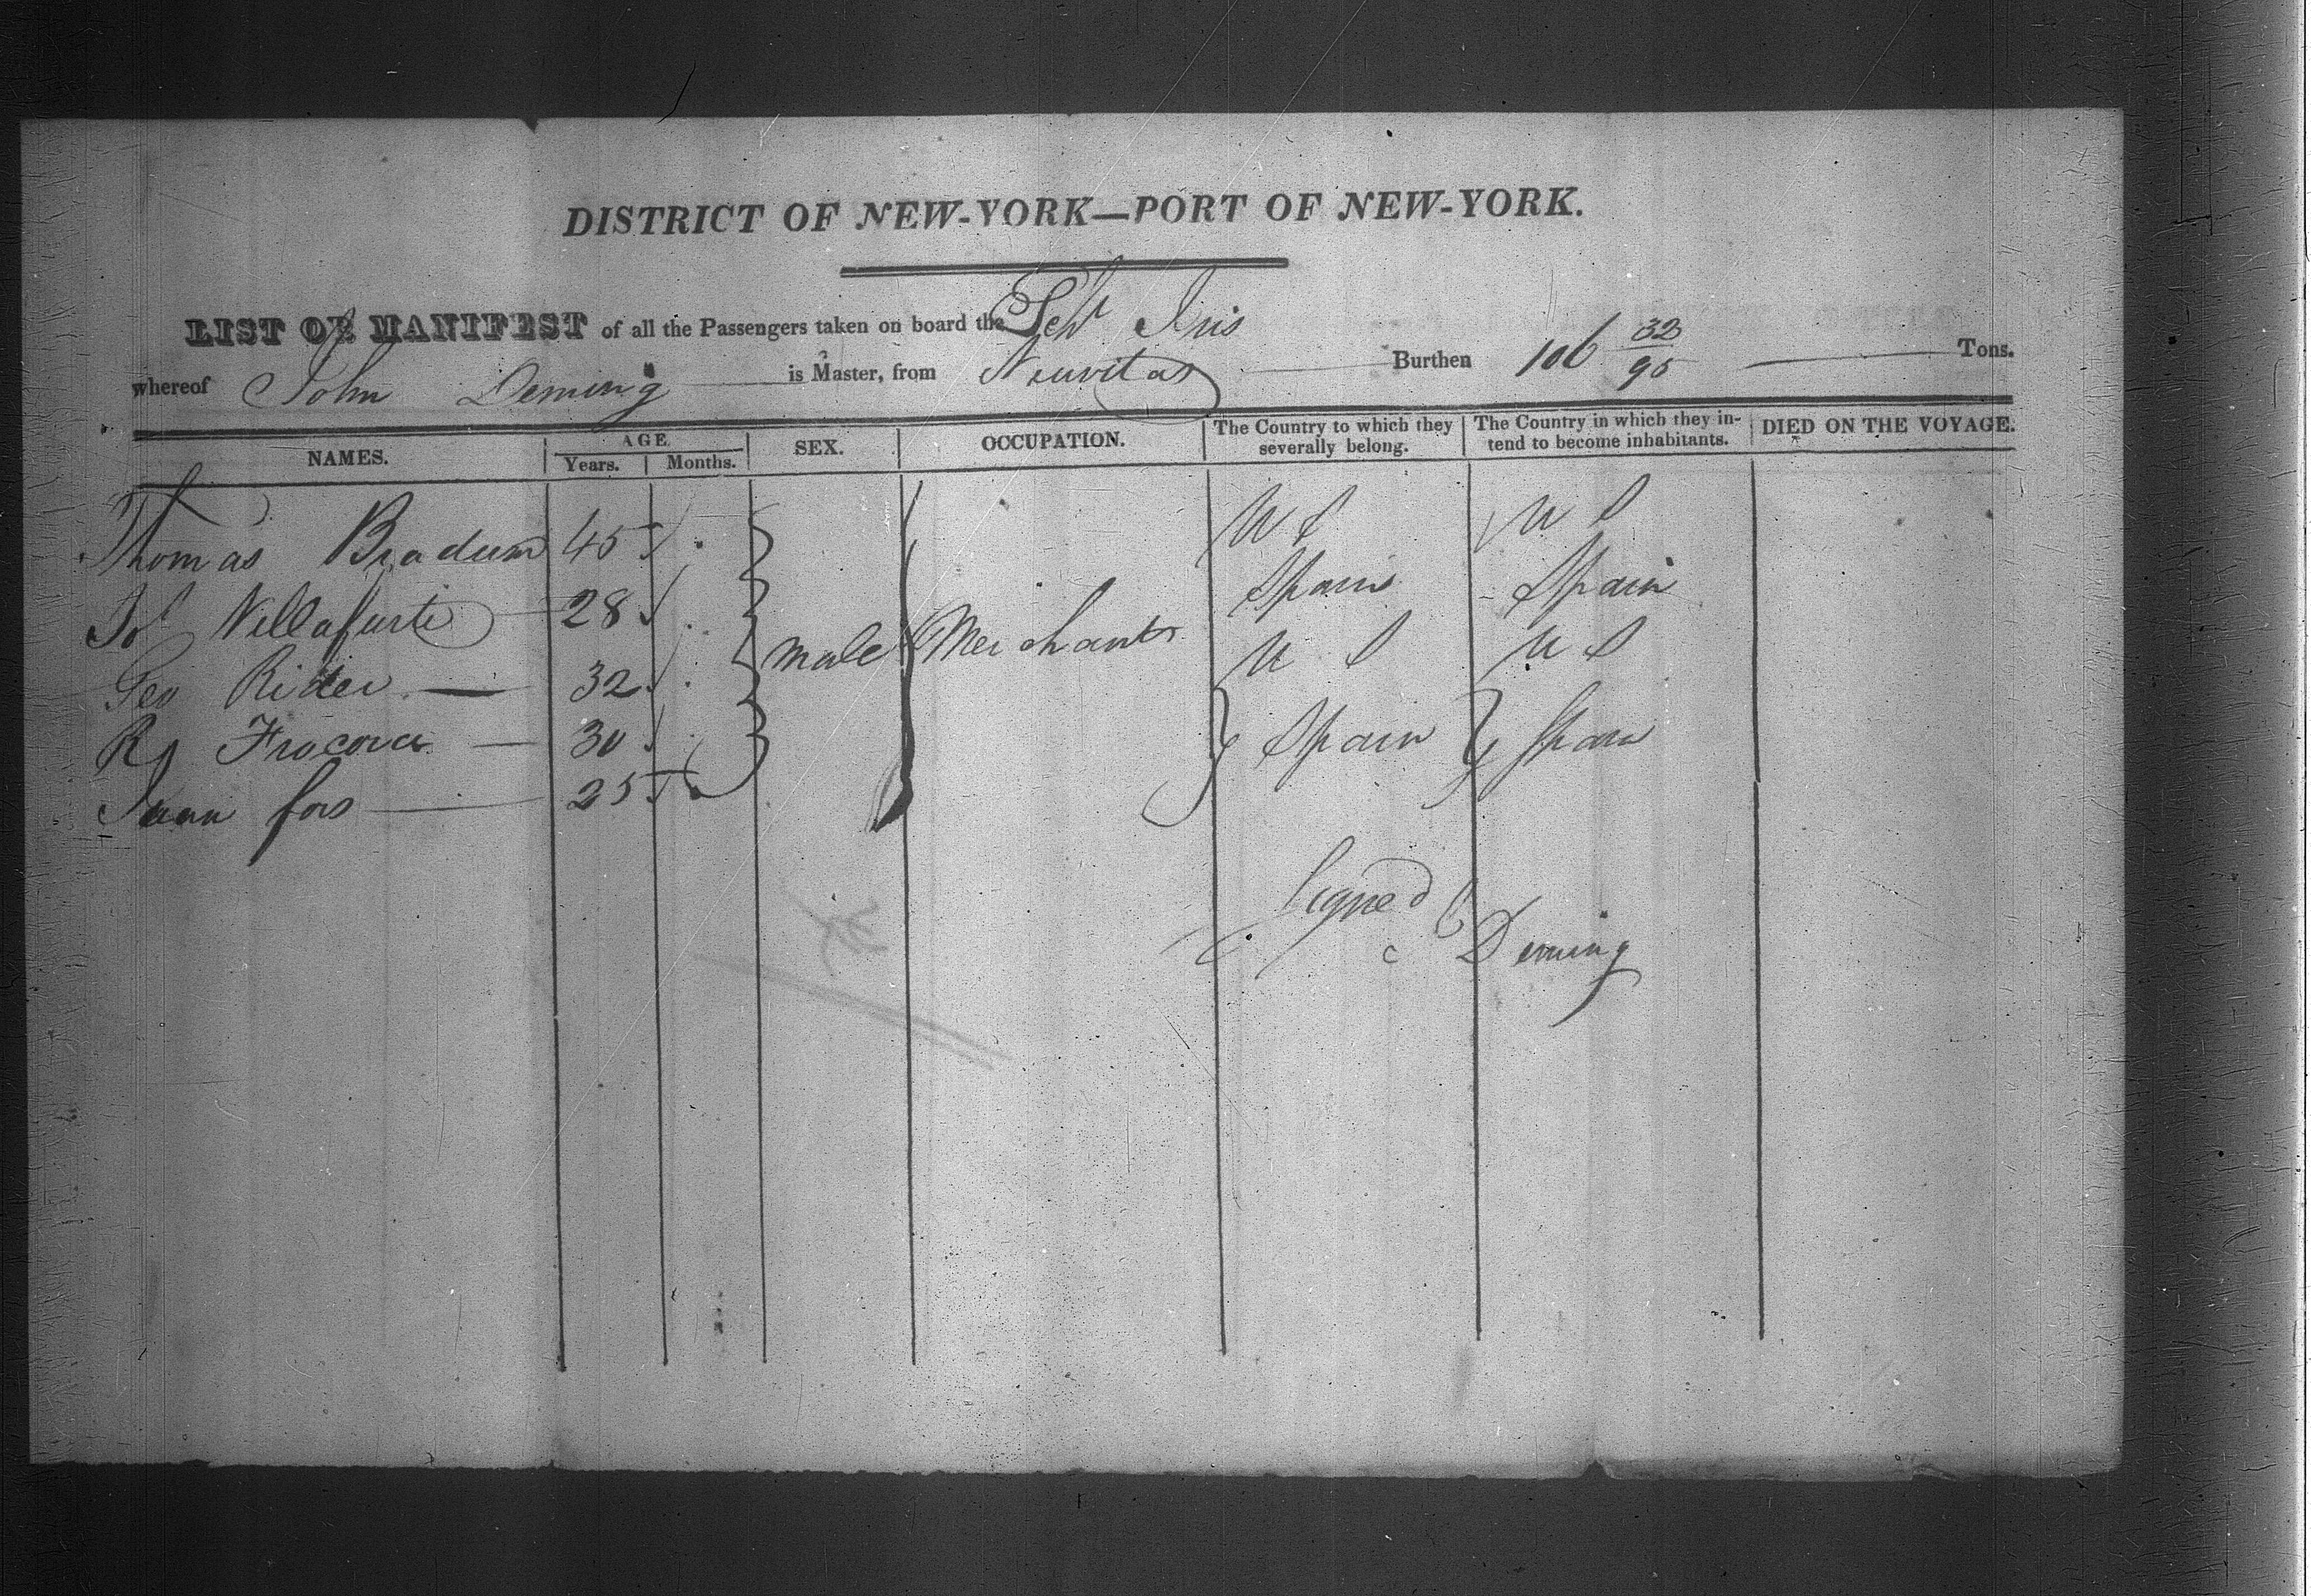 DISTRICT OF NEW-YORK—PORT OF NEW-YORK.
LIST OR MANIFEST of all the Passengers taken on board the Schr Iris
whereof John Deming is Master, from Neuvitas Burthen 106 32/95 Tons.
NAMES. AGE Years. Months. SEX. OCCUPATION. The Country to which they severally belong. The Country in which they intend to become inhabitants. DIED ON THE VOYAGE.
Thomas 45 U S U S
Villafuerte 28 Spain Spain
Geo Rider 32 male Merchants U S U S
30 Spain Spain
Juan fors 25
Signed
J Deming